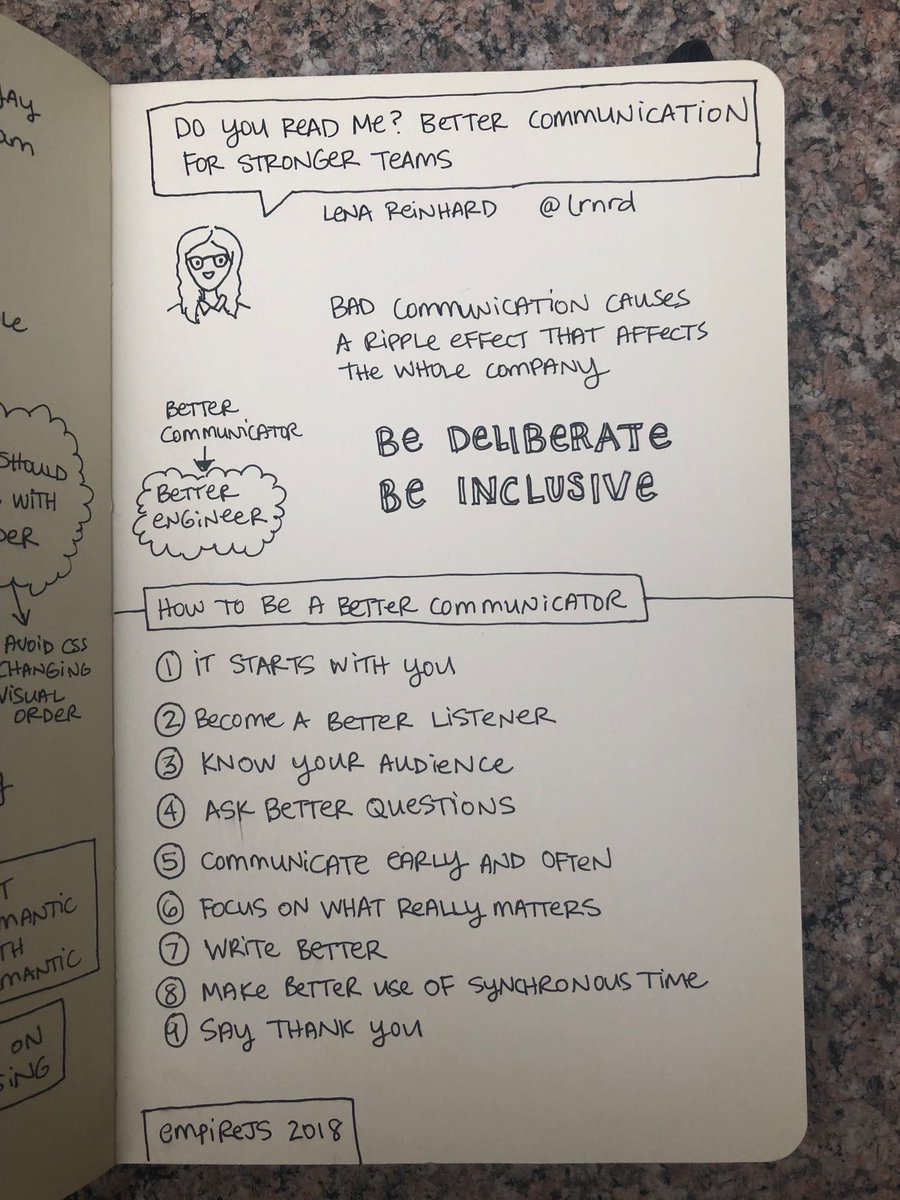 DO YOU READ ME? BETTER COMMUNICATION
FOR STRONGER TEAMS
LENA REINHARD @lrnrd
BAD COMMUNICATION CAUSES
A RIPPLE EFFECT THAT AFFECTS
THE WHOLE COMPANY
BETTER
COMMUNICATOR
BETTER
ENGINEER
BE DELIBERATE
BE INCLUSIVE
HOW TO BE A BETTER COMMUNICATOR
1 IT STARTS WITH YOU
2 BECOME A BETTER LISTENER
3 KNOW YOUR AUDIENCE
4 ASK BETTER QUESTIONS
5 COMMUNICATE EARLY AND OFTEN
6 FOCUS ON WHAT REALLY MATTERS
7 WRITE BETTER
8 MAKE BETTER USE OF SYNCHRONOUS TIME
9 SAY THANK YOU
EMPIREJS 2018
SHOULD
WITH
AVOID CSS
CHANGING
VISUAL
ORDER
ON